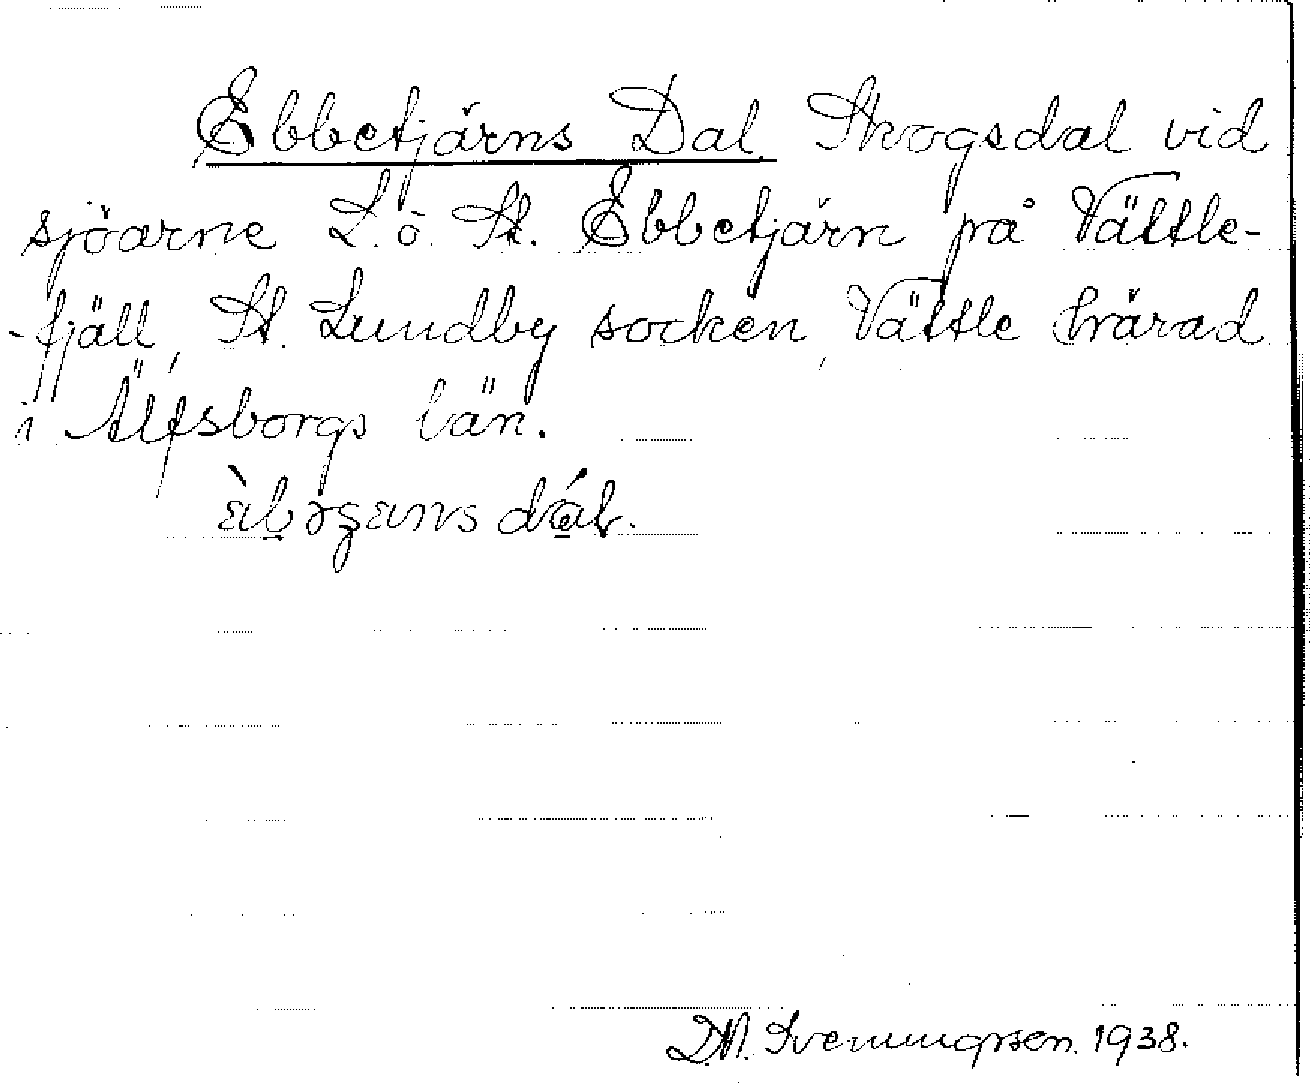 Ebbetjärns Dal Skogsdal vid
sjöarne L. o. St. Ebbetjärn på Vättle-
-fjäll, St. Lundby socken, Vättle härad
i Älfsborgs län.
1938.